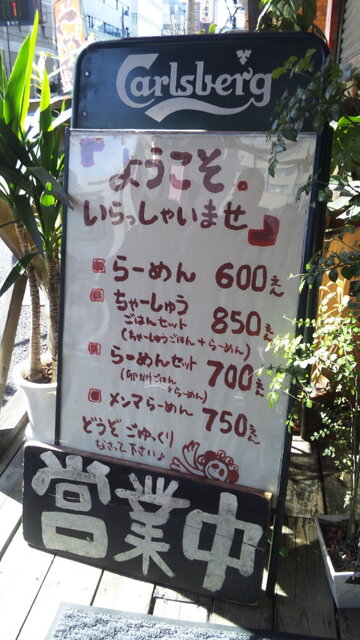 Carlsberg
『ようこそ.
いらっしゃいませ』
らーめん 600えん
ちゃーしゅう
ごはんセット 850えん
(ちゃーしゅうごはん+らーめん)
らーめんセット 700えん
(卵かけごはん
+らーめん)
メンマらーめん 750えん
どうぞごゆっくり
なさって下さい♪
営業中